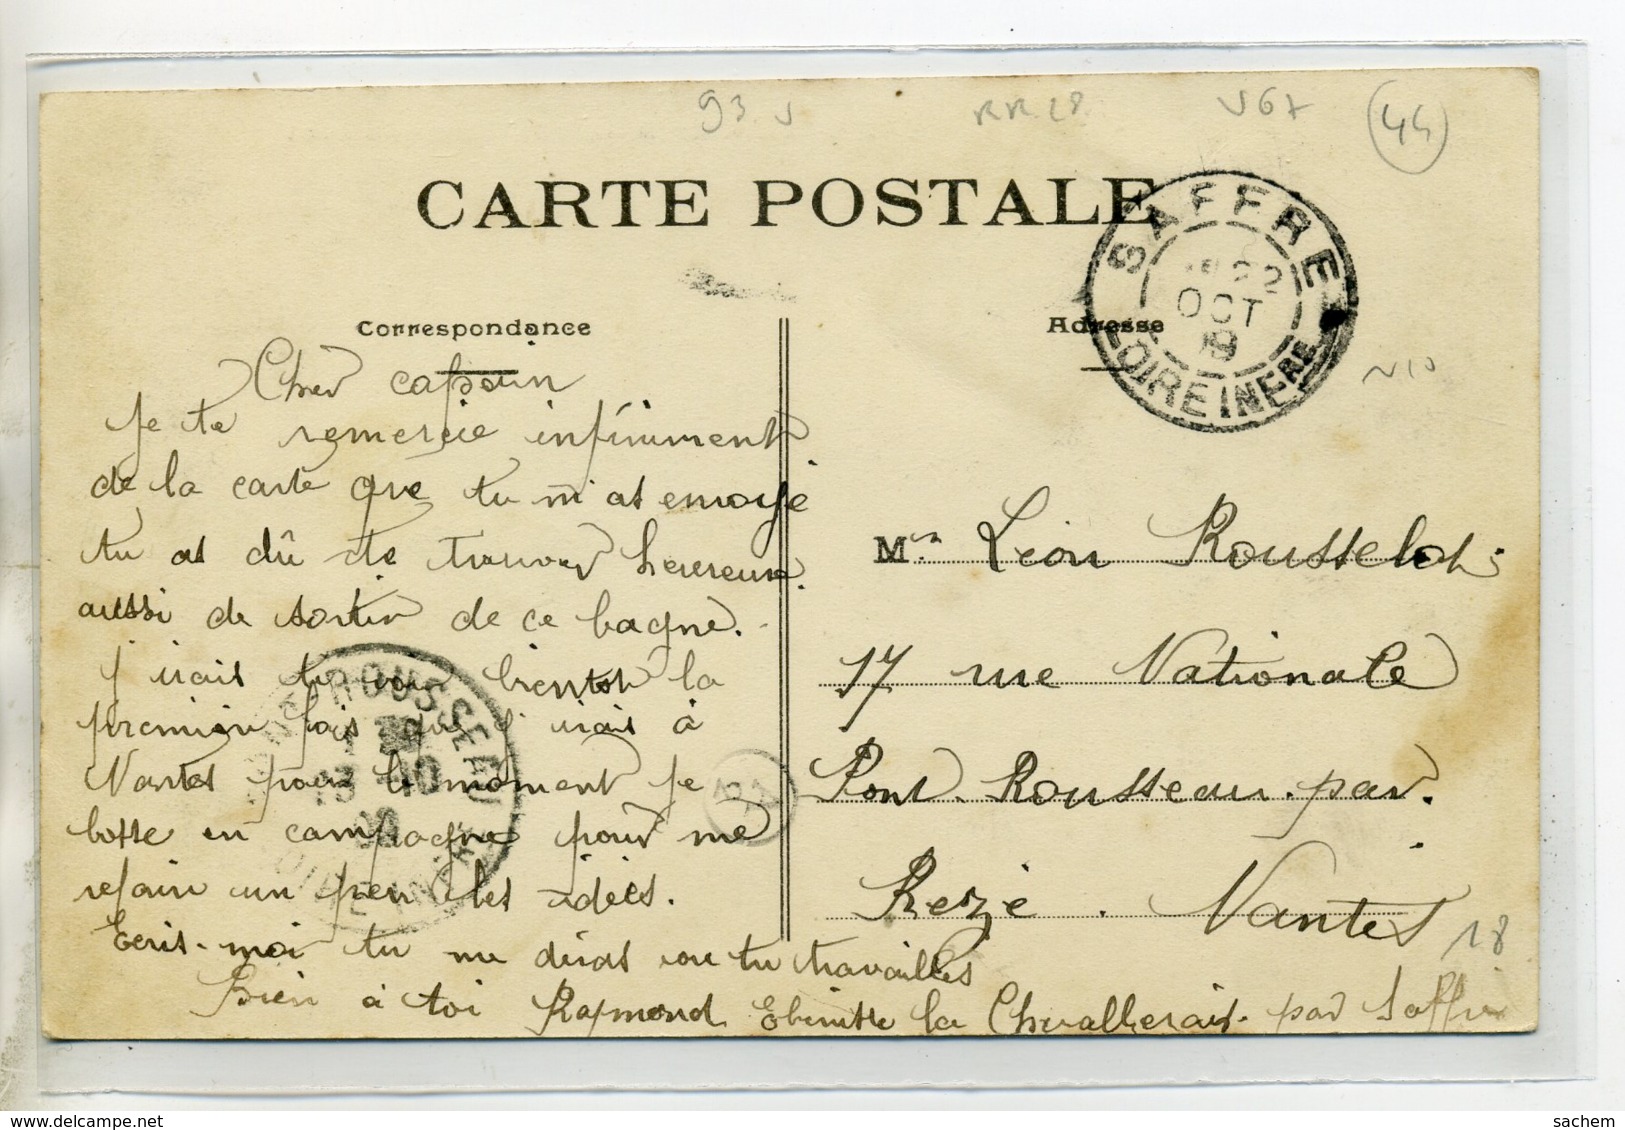 93
RR 28
V67
44
CARTE POSTALE
SAFFRE
22
OCT
LOIRE INFRE
Correspondance
Adresse
Cher capoin
Je te remercie infiniment
de la carte que tu m'as envoyé
tu as dû te trouver heureuse
aussi de sortir de ce bagne.
j'irais tu voir bientôt la
premier fois que j'irais à
Nantes pour le moment je
botte en campagne pour me
refair un peu les idées.
Ecris-moi tu me diras ou tu travailles
Bien à toi Raymond la Chevallerais par Saffré
Mr Léon Rousselot
17 rue Nationale
Pont-Rousseau-par
Rezé. Nantes
18
PONT ROUSSEAU
sachem